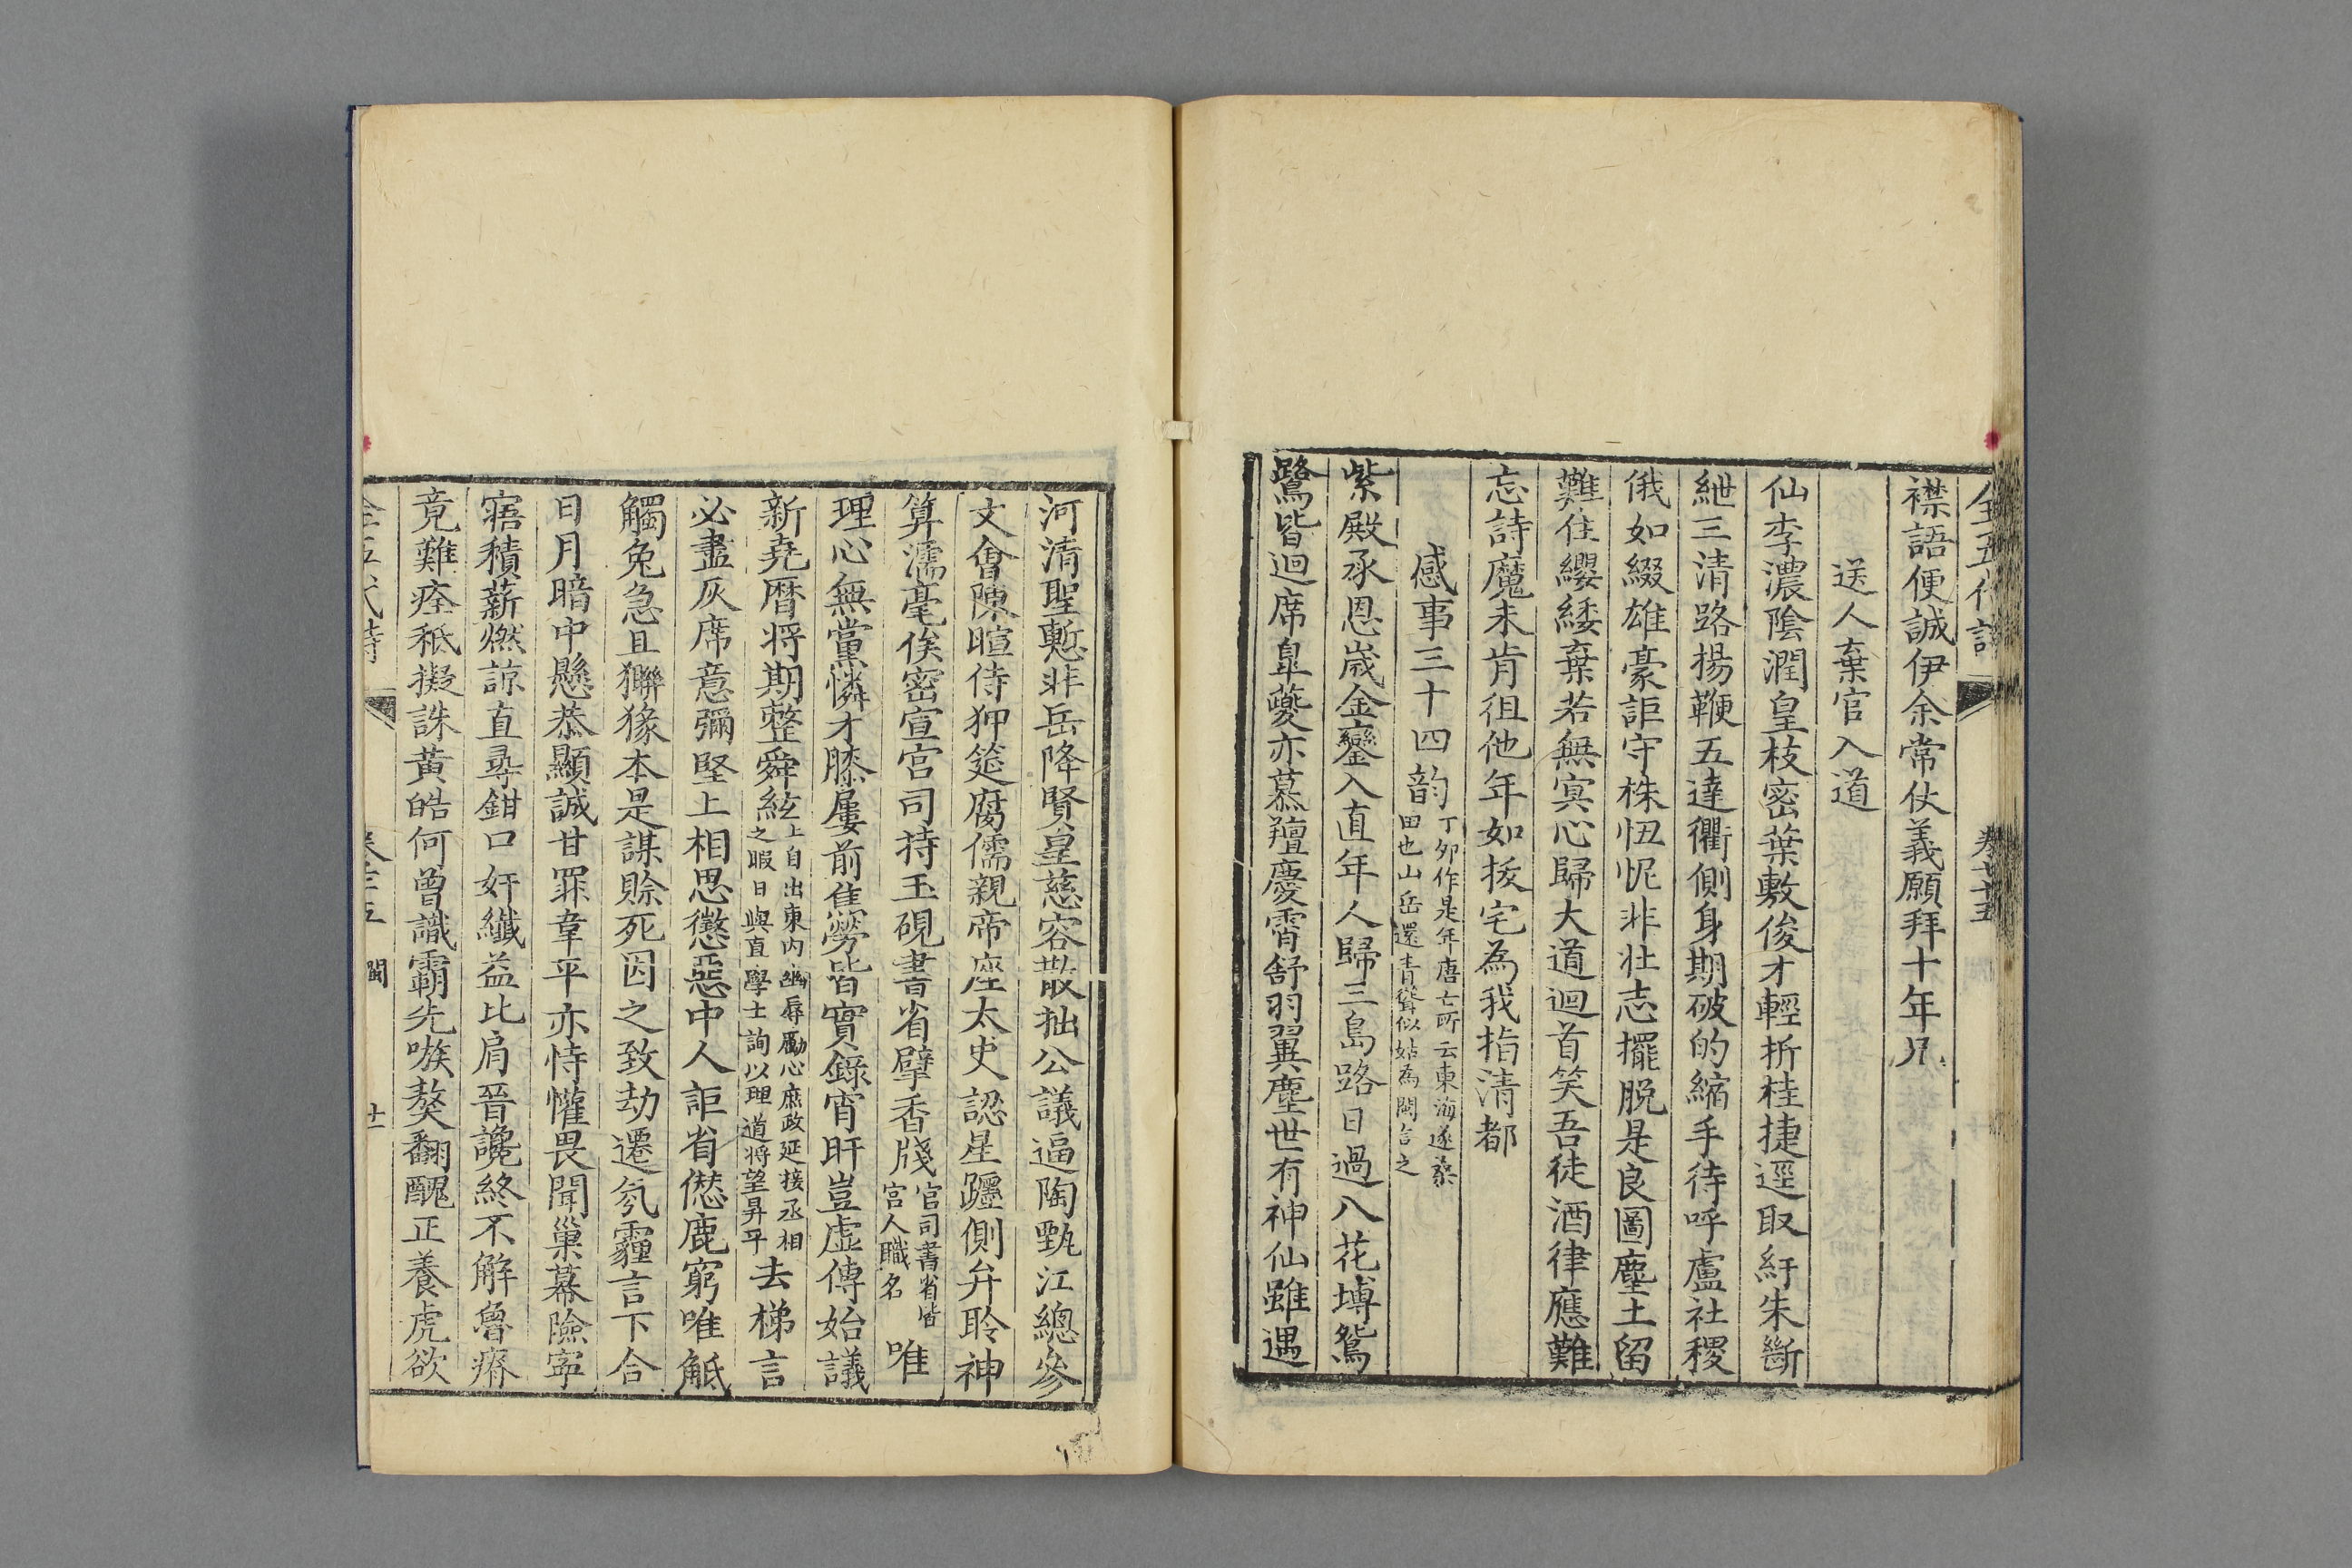 全五代詩 卷七十五
襟語便誠伊余常仗義願拜十年兄
送人棄官入道
仙李濃陰潤皇枝密葉敷俊才輕折桂捷逕取紆朱斷
紲三清路揚鞭五達衢側身期破的縮手待呼盧社稷
俄如綴雄豪詎守株忸怩非壯志擺脫是良圖塵土留
難住纓緌棄若無冥心歸大道迴首笑吾徒酒律應難
忘詩魔未肯徂他年如拔宅為我指清都
感事三十四韵丁卯作是年唐亡所云東海遂桑田也山岳還青聳似姑為閩言之
紫殿承恩歲金鑾入直年人歸三島路日過八花塼鴛
鷺皆迴席皐夔亦慕羶慶霄舒羽翼塵世有神仙雖遇
河清聖慙非岳降賢皇慈容散拙公議逼陶甄江總參
文會陳暄侍狎筵腐儒親帝座太史認星躔側弁聆神
算濡毫俟密宣宮司持玉硯書省擘香牋官司書省皆宮人職名唯
理心無黨憐才膝屢前焦勞皆實錄宵旰豈虛傳始議
新堯曆將期整舜絃上自出東內幽辱勵心庶政延接丞相之暇日與直學士詢以理道將望昇平去梯言
必盡灰席意彌堅上相思懲惡中人詎省愆鹿窮唯觝
觸兔急且獬猭本是謀賒死因之致劫遷氛霾言下合
日月暗中懸恭顯誠甘罪韋平亦恃權畏聞巢幕險寧
寤積薪燃諒直尋鉗口奸纖益比肩晉讒終不解魯瘠
竟難痊秪擬誅黃皓何曾識霸先嗾獒翻醜正養虎欲
全五代詩 卷七十五 閩 十一